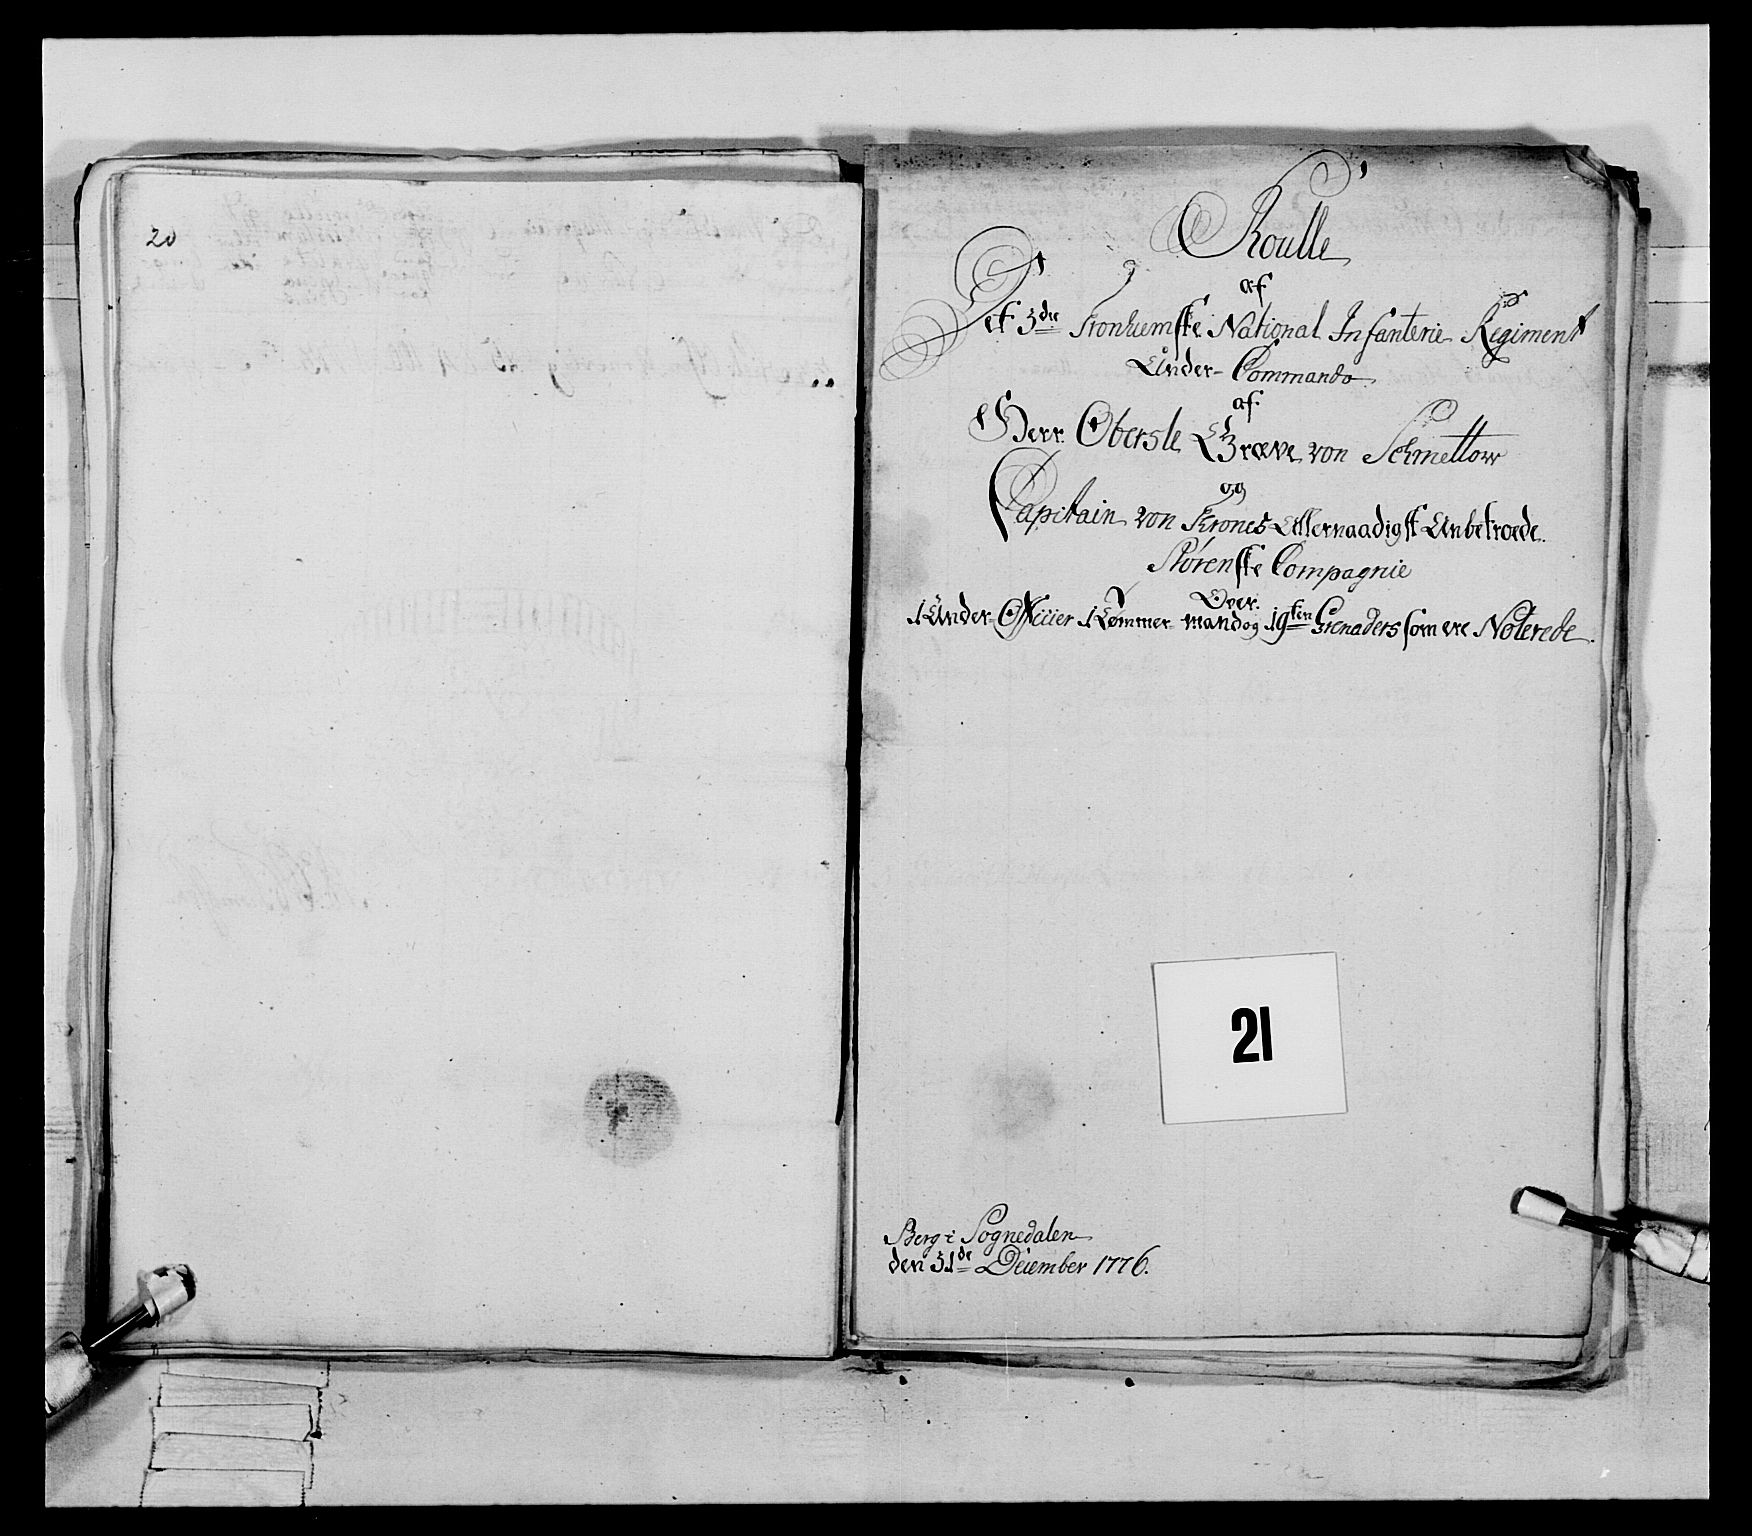 20
Roulle
af
Det 3die Tronhiemske National Infanterie Regiment
Under Commando
af
Herr Oberste Græve von Schmettow
og
Capitain von Krones Allernaadigst Anbetroede
Størenske Compagnie
Over
1 Under-Officier 1 Tømmer-mand og 19ten Grenaders som ere Noterede.
21
Berg i Sognedalen
den 31de December 1776.